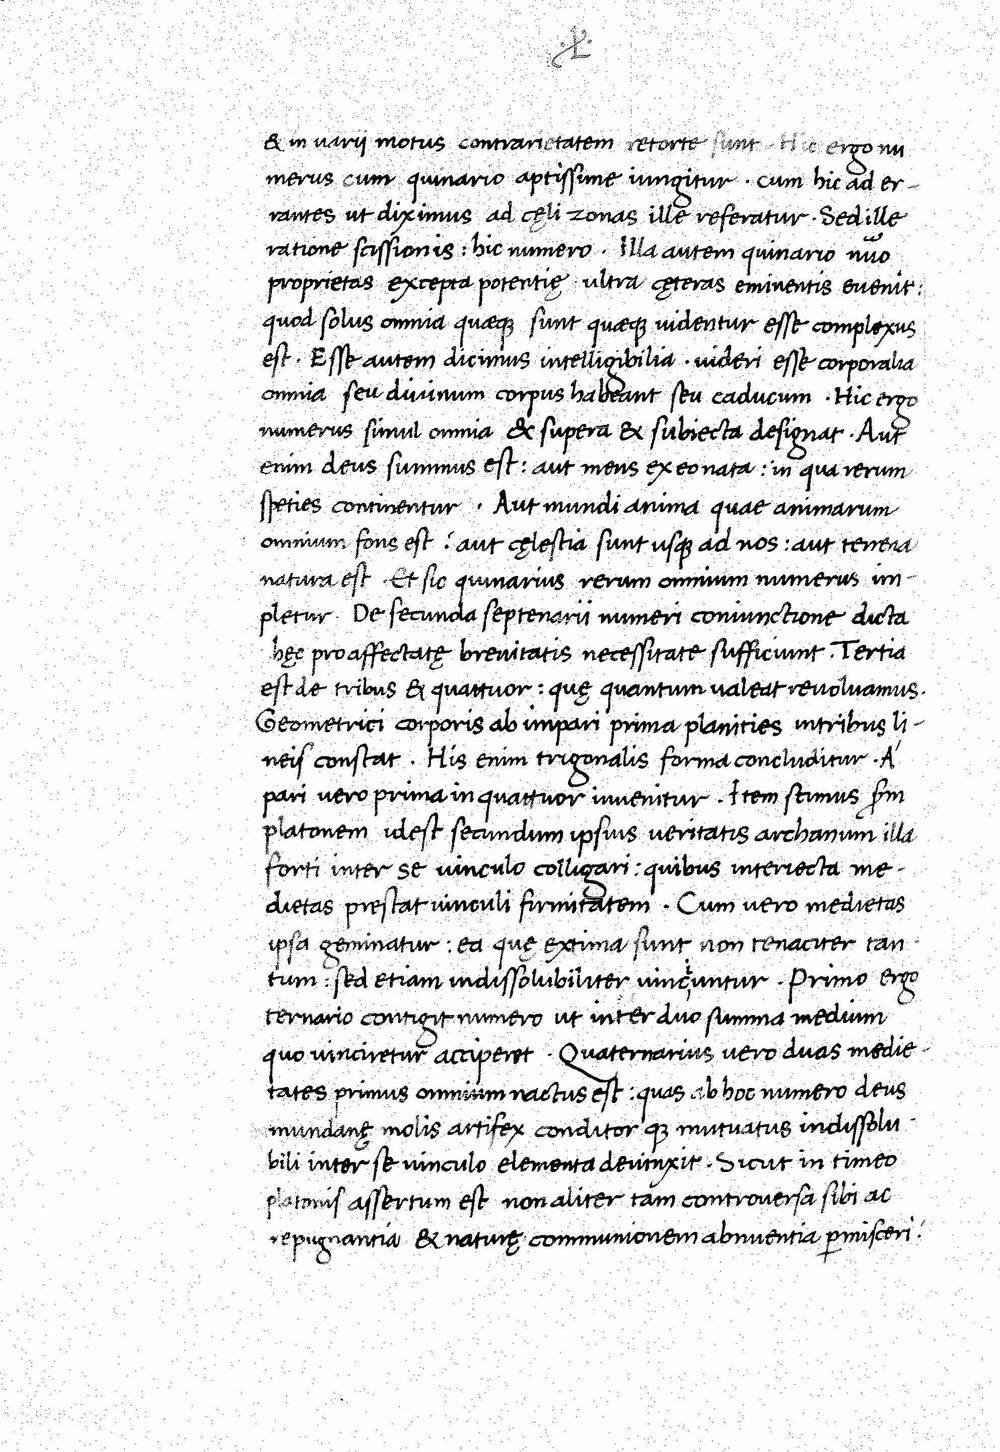 & in uarij motus contrarietatem retorte sunt · Hic ergo nu
merus cum quinario aptissime iungitur · cum hic ad er-
rantes ut diximus ad cęli zonas ille referatur · Sed ille
ratione scissionis : hic numero · Illa autem quinario nuo
proprietas excepta potentię ultra cęteras eminentis euenit :
quod solus omnia quæqꝫ sunt quæqꝫ uidentur esse complexus
est · Esse autem dicimus intelligibilia · uideri esse corporalia
omnia seu diuinum corpus habeant seu caducum · Hic ergo
numerus simul omnia & supera & subiecta designat · Aut
enim deus summus est : aut mens ex eo nata : in qua rerum
speties continentur · Aut mundi anima quae animarum
omnium fons est : aut cęlestia sunt usqꝫ ad nos : aut terena
natura est · Et sic quinarius rerum omnium numerus im-
pletur · De secunda septenarii numeri coniunctione dicta
hęc pro affectatę breuitatis necessitate sufficiunt · Tertia
est de tribus & quattuor : quę quantum ualeat reuoluamus ·
Geometrici corporis ab impari prima planities in tribus li-
neis constat · His enim trigonalis forma concluditur · A
pari uero prima in quattuor inuenitur · Item scimus sm̄
platonem idest secundum ipsius ueritatis archanum illa
forti inter se uinculo colligari : quibus interiecta me-
dietas prestat uinculi firmitatem · Cum uero medietas
ipsa geminatur : ea quę extima sunt non tenaciter tan
tum : sed etiam indissolubiliter uinciuntur · Primo ergo
ternario contigit numero ut inter duo summa medium
quo uinciretur acciperet · Quaternarius uero duas medie-
tates primus omnium nactus est : quas ab hoc numero deus
mundanę molis artifex conditorqꝫ mutuatus indissolu-
bili inter se uinculo elementa deuinxit · Sicut in timeo
platonis assertum est non aliter tam controuersa sibi ac
repugnantia & naturę communionem abnuentia ꝑmisceri :